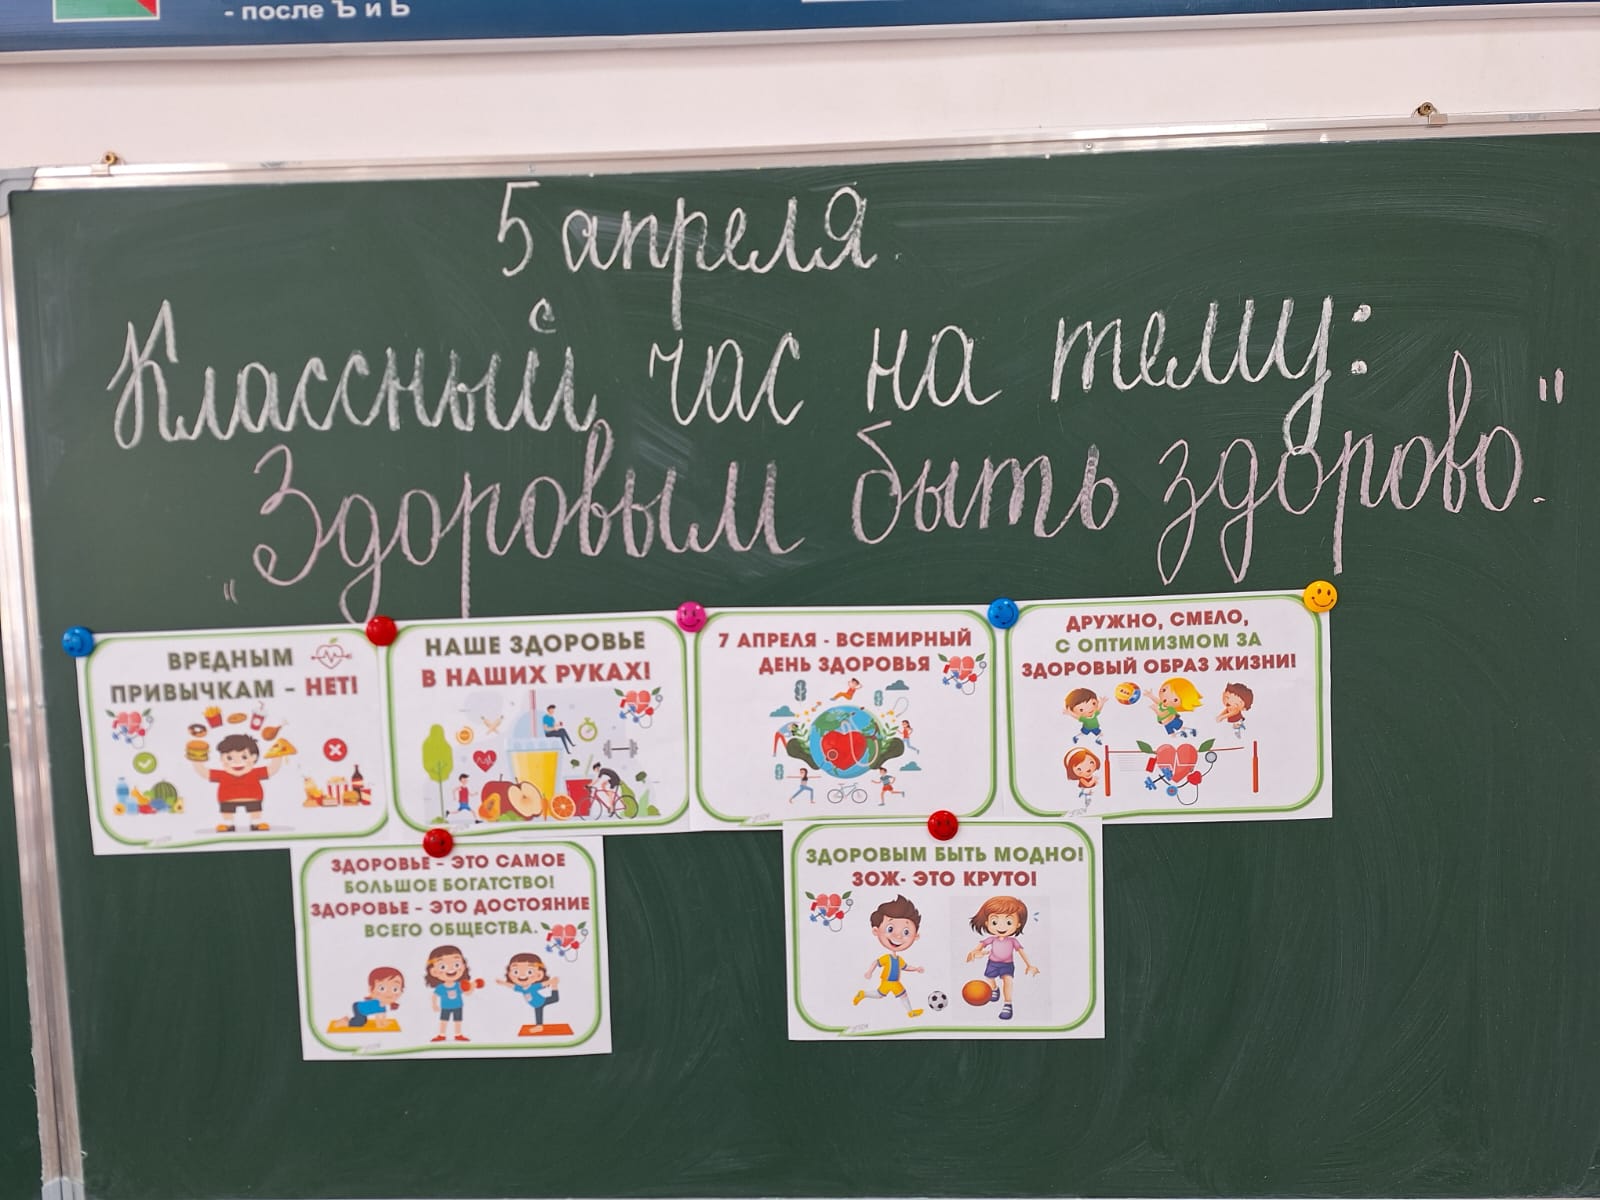 - после Ъ и Ь
5 апреля.
Классный час на тему:
„Здоровым быть здорово."
ВРЕДНЫМ
ПРИВЫЧКАМ – НЕТ!
НАШЕ ЗДОРОВЬЕ
В НАШИХ РУКАХ!
7 АПРЕЛЯ - ВСЕМИРНЫЙ
ДЕНЬ ЗДОРОВЬЯ
ДРУЖНО, СМЕЛО,
С ОПТИМИЗМОМ ЗА
ЗДОРОВЫЙ ОБРАЗ ЖИЗНИ!
ЗДОРОВЬЕ – ЭТО САМОЕ
БОЛЬШОЕ БОГАТСТВО!
ЗДОРОВЬЕ – ЭТО ДОСТОЯНИЕ
ВСЕГО ОБЩЕСТВА.
ЗДОРОВЫМ БЫТЬ МОДНО!
ЗОЖ- ЭТО КРУТО!